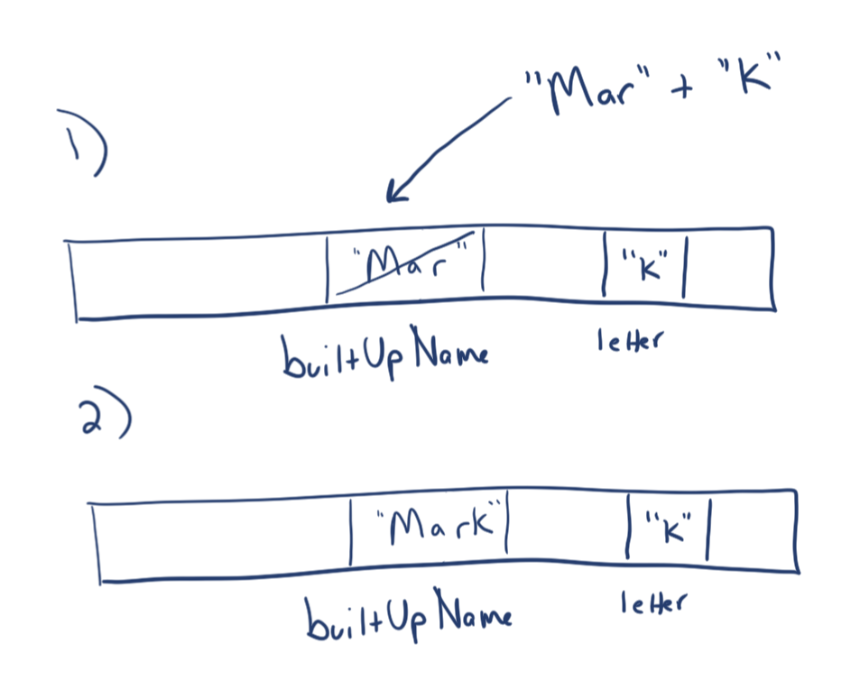 "Mar" + "K"
1)
"Mar" "K"
builtUpName letter
2)
"Mark" "K"
builtUpName letter